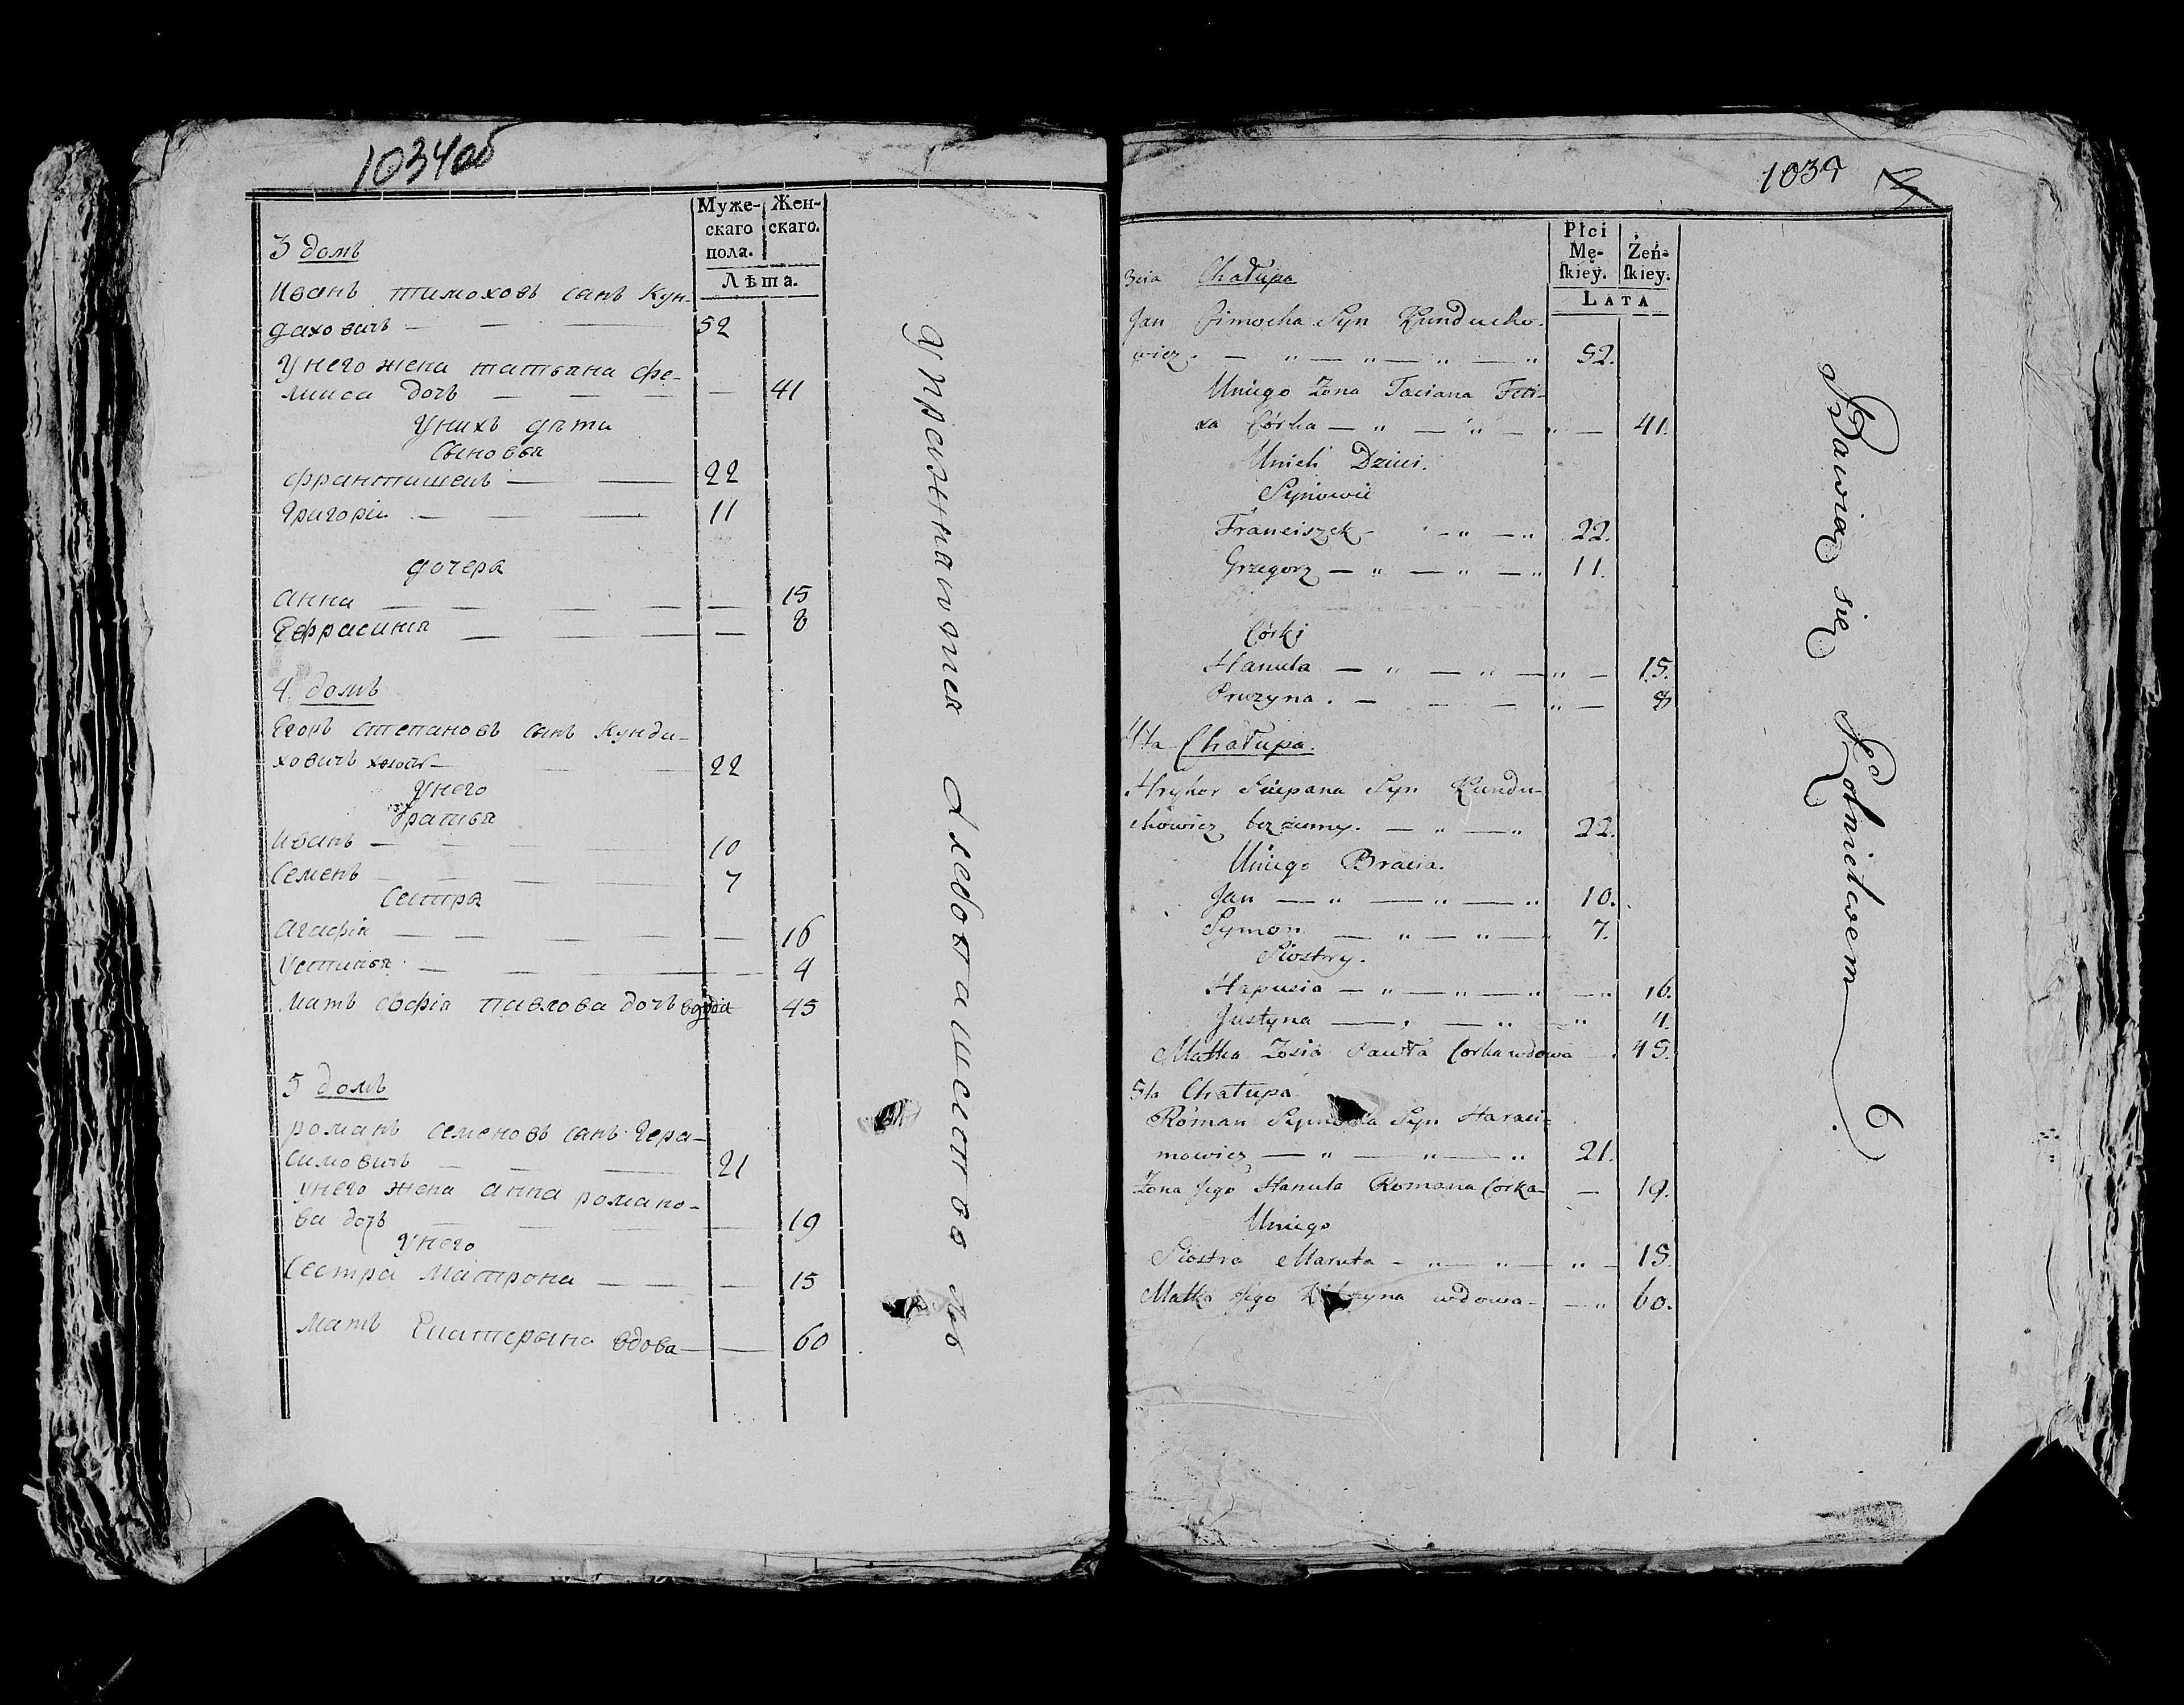 1034об
Муже-
скаго
пола.
Жен-
скаго.
Лѣта.
3 домъ
Иванъ тимоховъ сынъ Кун-
даховичъ — — — 52
Унего жена татьяна фе-
лиша дочь — — — — 41
Унихъ дѣти
Сыновья
франтишекъ — — 22
Григорій — — — 11
дочеря
анна — — — — — 15
Ефрасинья — — — — 8
4 домъ
Егоръ степановъ сынъ Кунди-
ховичъ холост — — — 22
Унего
братья
Иванъ — — — — 10
Семенъ — — — — 7
Сестра
агафія — — — — — 16
Устинья — — — — — 4
мать софія павлова дочь вдова 45
5 домъ
романъ семеновъ сынъ Гера-
симовичъ — — — 21
унего жена анна романо-
ва дочь — — — — 19
Унего
Сестра матрона — — — 15
мать Екатерына вдова — — 60
упражнаются хлебопашество мъ
1037
Płci
Mę-
ſkiey.
Żeń-
ſkiey.
LATA
3cia Chałupa
Jan Cimocha Syn Kunducho-
wicz. — " — " — " — " 52.
Uniego Żona Taciana Feli-
xa Córka — " — " — " — 41.
Unich Dzieci.
Synowie
Franciszek - - " — " 22.
Grzegorz — " — " — " 11.
Córki
Hanula — " — " — " — 15.
Pruzyna . — — — " — 8
4ta Chałupa.
Hryhor Sciepana Syn Kundu-
chowicz bez żenny. — " — " 22.
Uniego Bracia.
Jan — " — " — " 10.
Symon — " — " — " 7.
Siostry.
Hapusia — " — " — " — " 16.
Justyna — " — " — " 4.
Matka Zosia Pawła Corka wdowa — . 45.
5ta Chałupa
Roman Symona Syn Harasi-
mowicz — " — " — " 21.
Żona Jego Hanula Romana Corka — — 19.
Uniego
Siostra Maruta - " — " — " — 15.
Matka Jego Katrzyna wdowa - — " 60.
Bawią się Rolnictwem